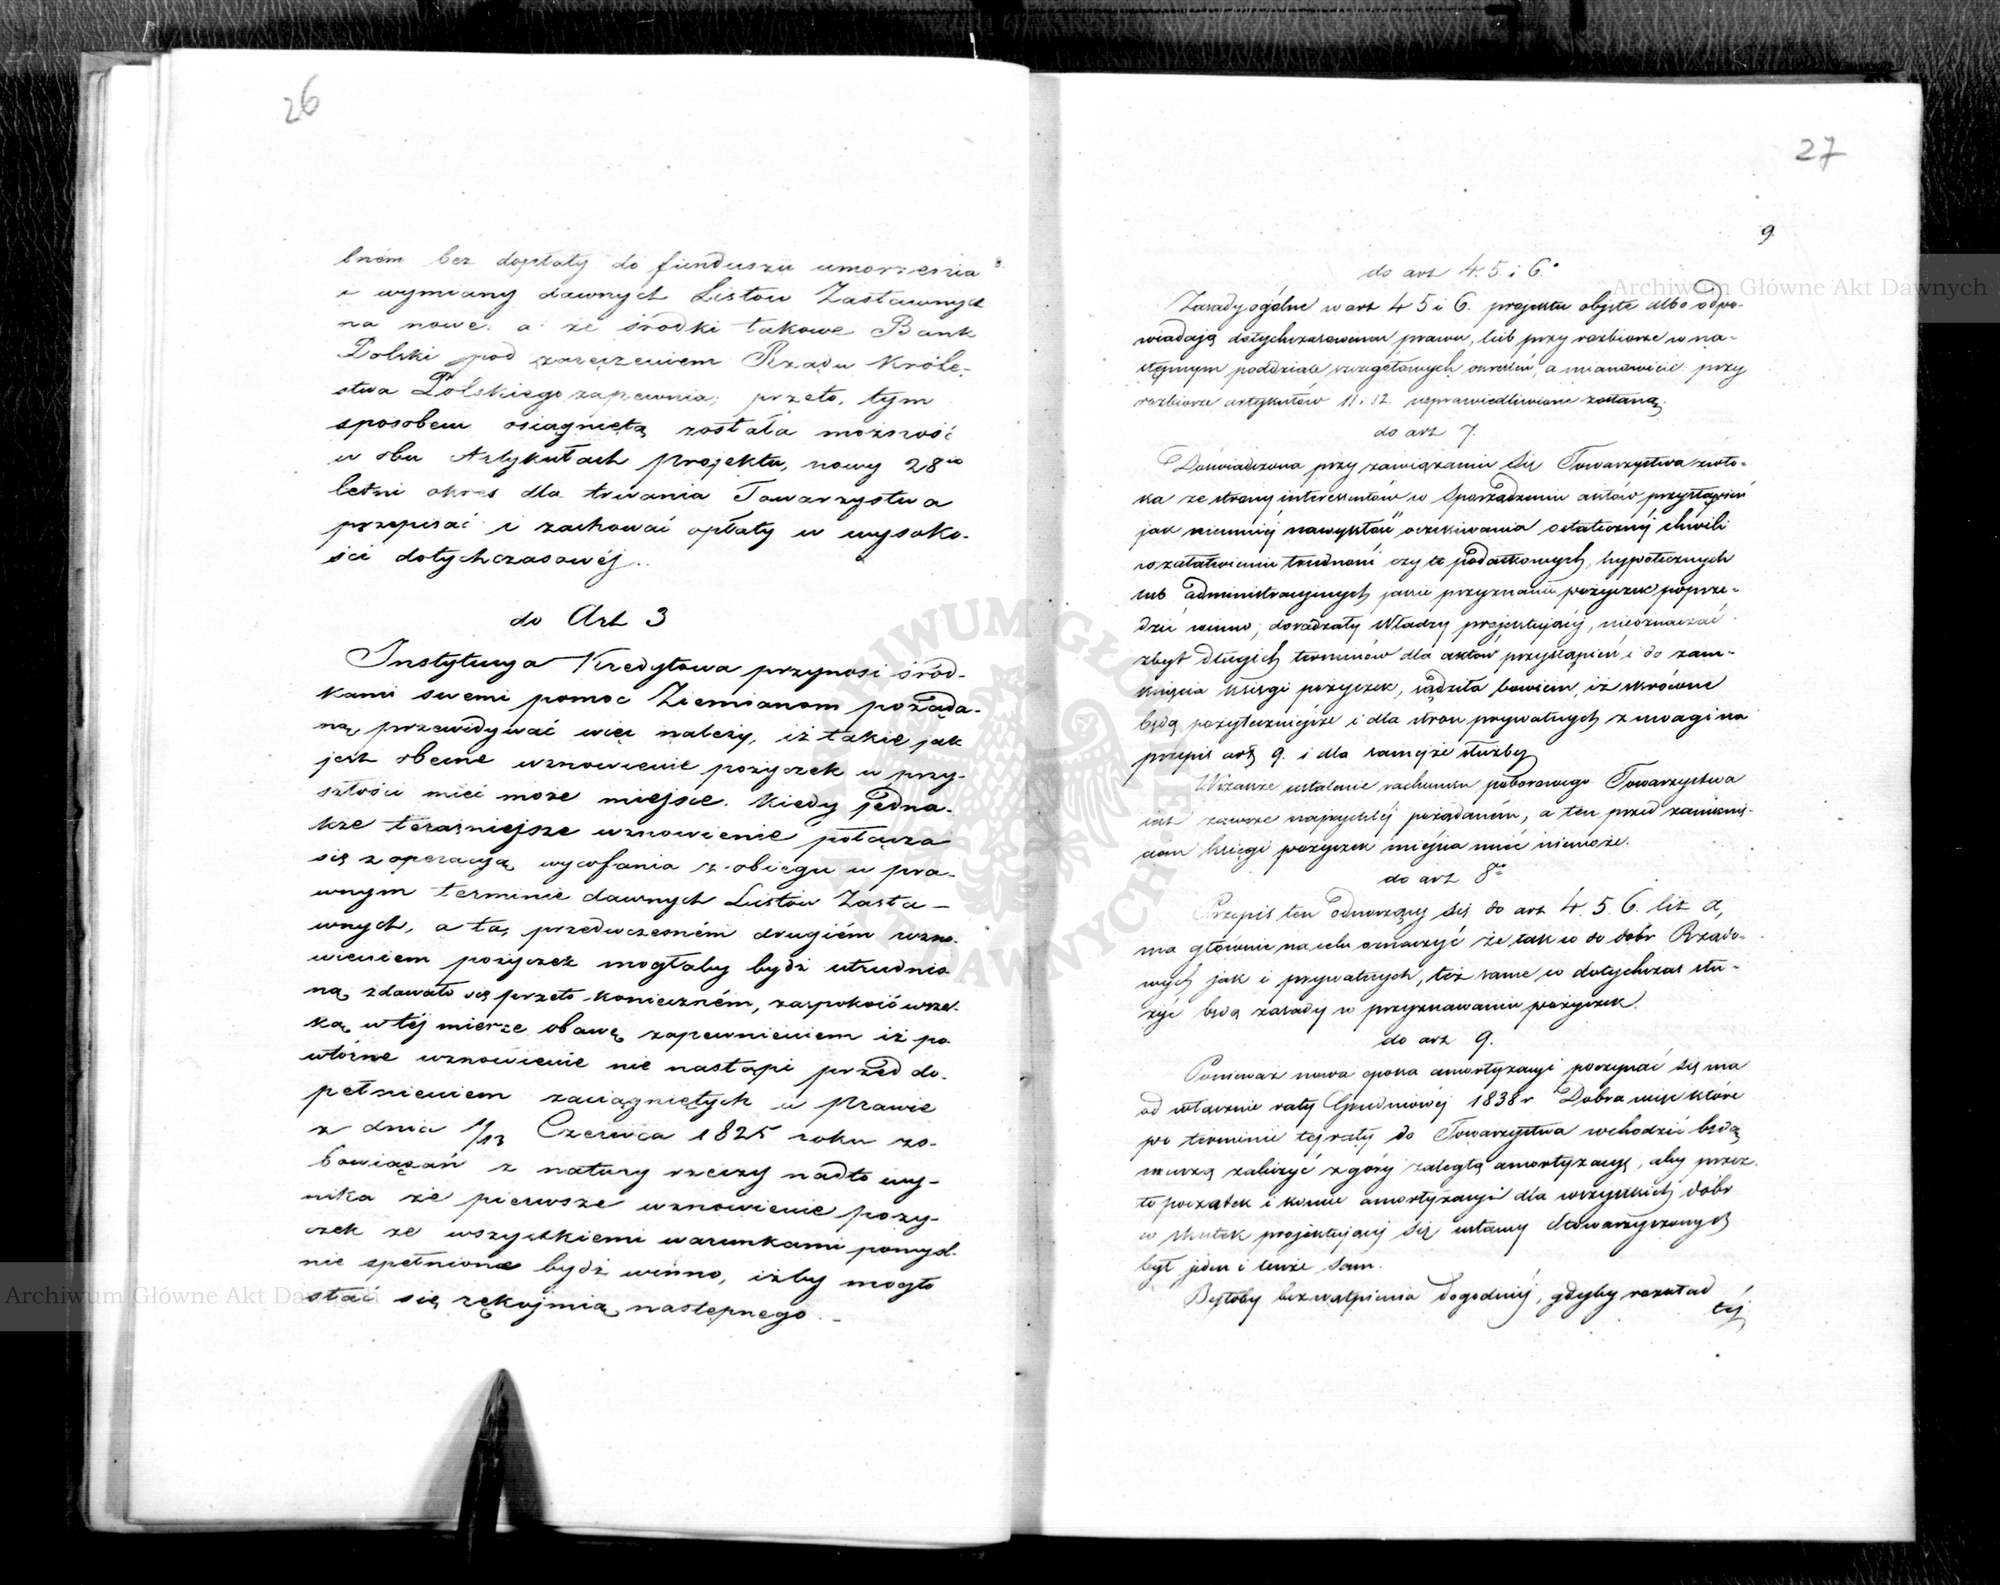 26
bném bez dopłaty do funduszu umorzenia
i wymiany dawnych Listów Zastawnych
na nowe. a że środki takowe Bank
Polski pod zaręczeniem Rządu Króle-
stwa Polskiego zapewnia; przeto, tym
sposobem osiągniętą została możność
w obu Artykułach projektu, nowy 28io
letni okres dla trwania Towarzystwa
przepisać i zachować opłaty w wysoko-
ści dotychczasowéj..
do Art 3
Instytucya Kredytowa przynosi środ-
kami swemi pomoc Ziemianom pożąda-
ną, przewidywać więc należy, iż takie jak
jest obecne wznowienie pożyczek w przy-
szłości mieć może miejsce. Kiedy jedna-
kże teraźniejsze wznowienie połącza
się z operacyą wycofania z obiegu w pra-
wnym terminie dawnych Listów Zasta-
wnych, a ta, przedwczesném drugiém wzno-
wieniem pożyczek mogłaby bydź utrudnio
ną, zdawało się przeto konieczném, zaspokoić wszel-
ką w téj mierze obawę zapewnieniem iż po
wtórne wznowienie nie nastąpi przed do-
pełnieniem zaciągniętych w Prawie
z dnia 1/13 Czerwca 1825 roku zo-
bowiązań z natury rzeczy nadto wy-
nika że pierwsze wznowienie poży-
czek ze wszystkiemi warunkami pomyśl-
nie spełnione bydź winno, iżby mogło
stać się rękojmią następnego.
27
9
do art 4. 5. i 6.
Zasady ogólne w art 4 5 i 6. projektu objęte albo odpo-
wiadają dotychczasowemu prawu, lub przy rozbiorze w na-
stępnym poddziale szczegółowych określeń, a mianowicie przy
rozbiorze artykułów 11 i 12. usprawiedliwione zostaną.
do art 7.
Doświadczona przy zawiązaniu się Towarzystwa zwło-
ka ze strony interesentów w sporządzeniu aktów przystąpień
jak niemniéj nawyknień oczekiwania ostatecznéj chwili
w załatwieniu trudności czy to podatkowych, hypotecznych
lub administracyjnych jakie przyznanie pożyczek poprze-
dzić winno; doradzały Władzy projektującéj, nieoznaczać
zbyt długich terminów dla aktów przystąpień i do zam-
knięcia księgi pożyczek, sądziła bowiem, iż skrócone
będą pożyteczniejsze i dla stron prywatnych z uwagi na
przepis art 9. i dla saméjże służby
Wszakże ustalenie rachunku poborowego Towarzystwa
jest zawsze najrychléj pożądaném, a ten przed zamknię-
ciem księgi pożyczek miejsca mieć niemoże.
do art 8o
Przepis ten odnoszący się do art 4. 5. 6. lit a,
ma głównie na celu oznaczyć że tak co do dóbr Rządo-
wych jak i prywatnych, też same co dotychczas słu-
żyć będą zasady w przyznawaniu pożyczek.
do art 9.
Ponieważ nowa epoka amortyzacyi poczynać się ma
od włącznie raty Grudniowéj 1838 r Dobra więc które
po terminie téj raty do Towarzystwa wchodzić będą
muszą zaliczyć z góry zaległą amortyzacyą, aby przez
to początek i koniec amortyzacyi dla wszystkich dóbr
w skutek projektującéj się ustawy stowarzyszonych
był jeden i tenże sam.
Byłoby bezwątpienia dogodniéj, gdyby rozkład
téj
Archiwum Główne Akt Dawnych
Archiwum Główne Akt Dawnych
ARCHIWUM GŁÓWNE AKT DAWNYCH